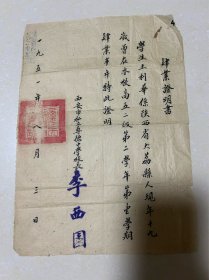 肄業證明書
學生王利華係陝西省大荔縣人現年十九
歲曾在本校高五二級第二學年第一學期
肄業半年特此證明
西安市私立尊德中學校長
李西園
一九五一年八月三日